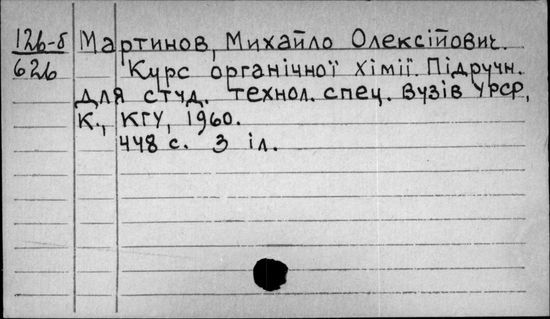 126-б Мартинов, Михайло Олексійович.
626 Курс органічної хімії. Підручн.
для студ. технол. спец. вузів УРСР,
К., КГУ, 1960.
448 с. З іл.